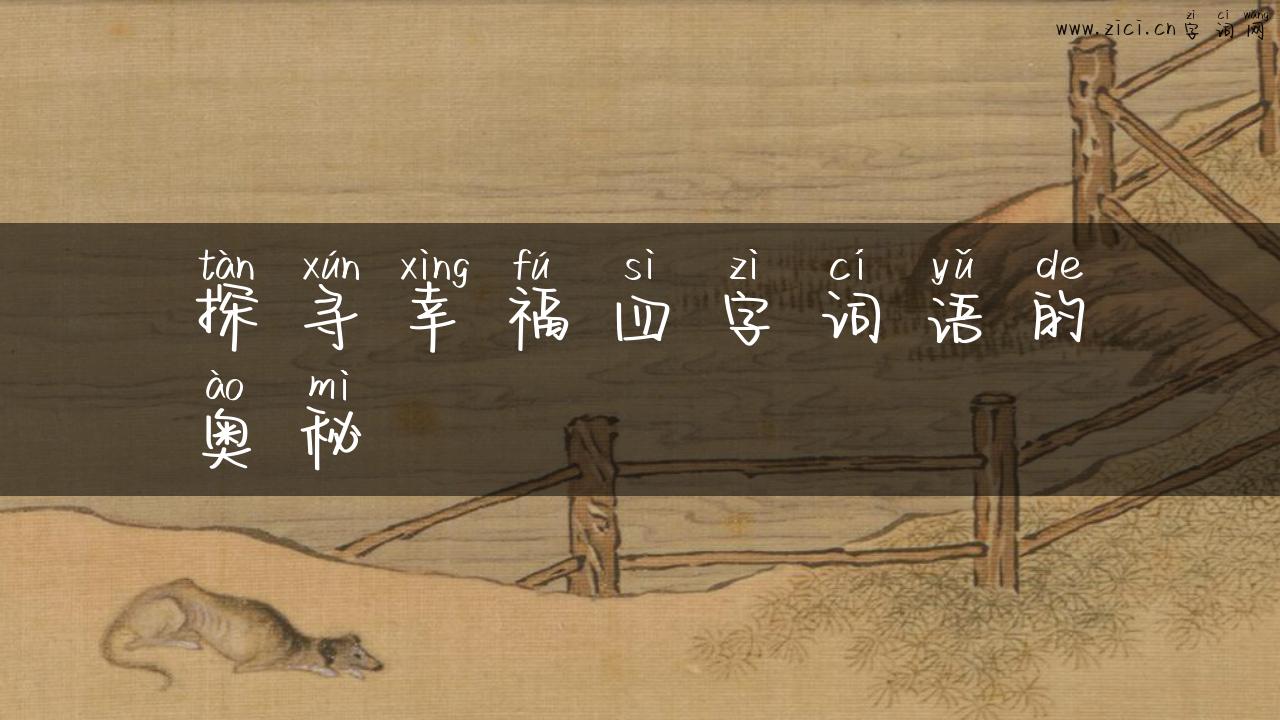 zì cí wǎng
www.zici.cn 字词网
tàn xún xìng fú sì zì cí yǔ de
探寻幸福四字词语的
ào mì
奥秘